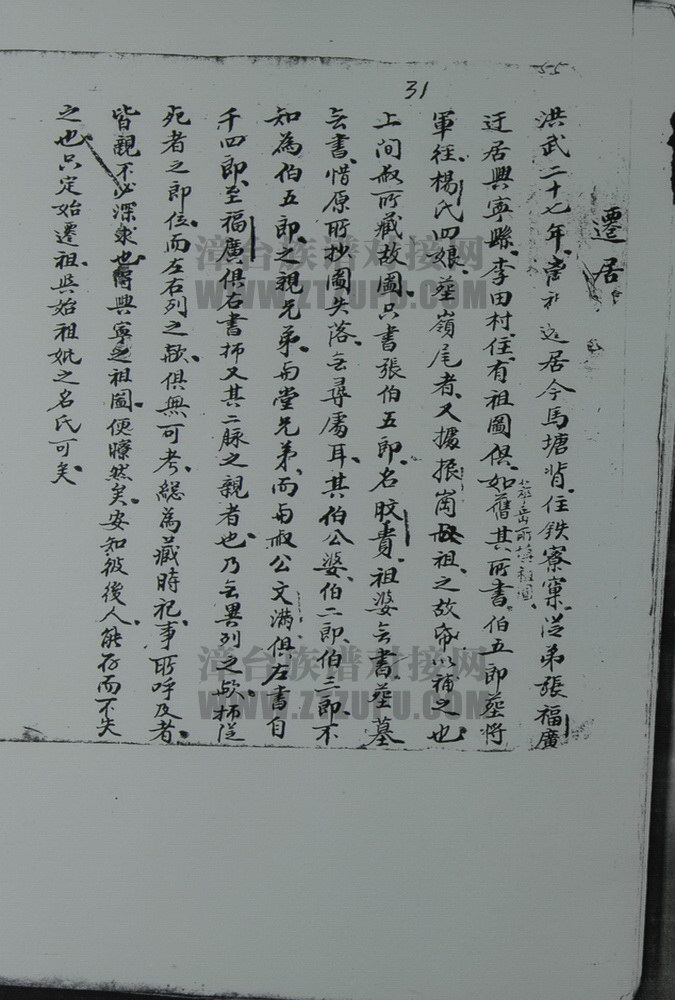 55
31
遷居
洪武二十七年嵩社迁居今馬塘背住鉄寮窠从弟張福廣
迁居興寧縣李田村住有祖圖俱如舊其所書伯五郎塟将
軍徑楊氏四娘塟嶺尾者又據振崗叔祖之故帋以補之也
上间叔所藏故圖只書張伯五郎名膠貴祖婆无書塟墓
无書惜原所抄圖失落无尋處耳其伯公婆伯二郎伯三郎不
知為伯五郎之親兄弟與堂兄弟而與叔公文滿俱左書自
千四郎至福廣俱右書抑又其二脉之親者也乃无異列之歟抑从
死者之即位而左右列之歟俱無可考総為藏時祀事所呼及者
皆親不必深求也得興寧之祖圖便瞭然矣安知彼後人能存而不失
之也只定始遷祖與始祖妣之名氏可矣
漳台族谱对接网
WWW.ZTZUPU.COM
漳台族谱对接网
WWW.ZTZUPU.COM